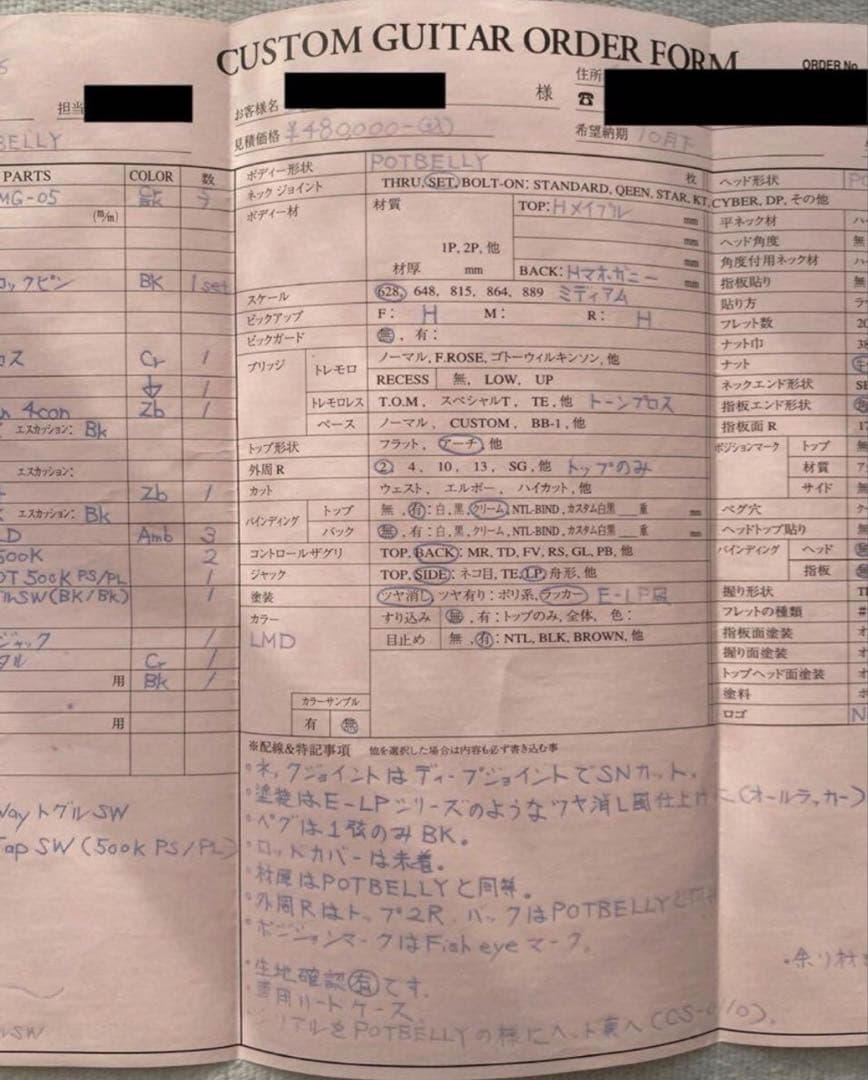 CUSTOM GUITAR ORDER FORM
ORDER No.
担当
お客様名 様
住所
☎
見積価格 ¥480,000-(込)
希望納期 10月下
BELLY
PARTS COLOR 数
MG-05 Cr 5
BK
(m/m)
ロックピン BK 1set
ロス Cr 1
↓ 1
4con Zb 1
エスカッション: Bk
エスカッション:
Zb 1
エスカッション: Bk
LD Amb 3
500K 2
OT 500K PS/PL 1
ルSW(BK/BK) 1
ジャック 1
タル Cr 1
用 BK 1
用
Way トグルSW
Tap SW (500K PS/PL)
SW
ボディー形状 POTBELLY
ネック ジョイント THRU, SET, BOLT-ON: STANDARD, QEEN, STAR, KT, CYBER, DP, その他
枚
ボディー材 材質 TOP: Hメイプル
mm
mm
1P, 2P, 他
mm
材厚 mm BACK: Hマホガニー mm
スケール 628, 648, 815, 864, 889 ミディアム
ピックアップ F: H M: R: H
ピックガード 無, 有:
ブリッジ トレモロ ノーマル, F.ROSE, ゴトーウィルキンソン, 他
RECESS 無, LOW, UP
トレモロレス T.O.M, スペシャルT, TE, 他 トーンプロス
ベース ノーマル, CUSTOM, BB-1, 他
トップ形状 フラット, アーチ, 他
外周 R 2, 4, 10, 13, SG, 他 トップのみ
カット ウェスト, エルボー, ハイカット, 他
バインディング トップ 無, 有: 白, 黒, クリーム, NTL-BIND, カスタム白黒 重 mm
バック 無, 有: 白, 黒, クリーム, NTL-BIND, カスタム白黒 重 mm
コントロールザグリ TOP, BACK: MR, TD, FV, RS, GL, PB, 他
ジャック TOP, SIDE: ネコ目, TE, LP, 舟形, 他
塗装 ツヤ消し ツヤ有り: ポリ系, ラッカー E-LP風
カラー すり込み 無, 有: トップのみ, 全体, 色:
LMD 目止め 無, 有: NTL, BLK, BROWN, 他
カラーサンプル
有 無
※配線&特記事項 他を選択した場合は内容も必ず書き込む事
・ネックジョイントはディープジョイントでSNカット。
・塗装はE-LPシリーズのようなツヤ消し風仕上げに(オールラッカー)
・ペグは1弦のみBK。
・ロッドカバーは未着。
・材厚はPOTBELLYと同等。
・外周Rはトップ2R、バックはPOTBELLYと同
・ポジションマークはFish eyeマーク。
・生地確認有です。
・専用ハードケース。
シリアルをPOTBELLYの様にヘッド裏へ
ヘッド形状
平ネック材
ヘッド角度 無
角度付用ネック材
指板貼り 無
貼り方
フレット数
ナット巾
ナット
ネックエンド形状
指板エンド形状
指板面 R
ポジションマーク トップ 無
材質
サイド 無
ペグ穴
ヘッドトップ貼り 無
バインディング ヘッド 無
指板 無
握り形状
フレットの種類 #
指板面塗装 オ
握り面塗装 オ
トップヘッド面塗装 オ
塗料
ロゴ N
・余り材